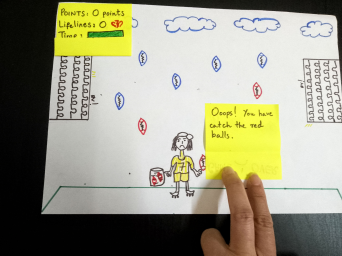 POINTS: 0 points
Lifelines: 0
Time:
Ooops! You have
catch the red
balls.